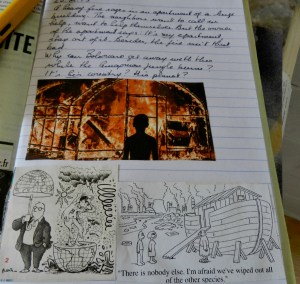 A big fire rages in an apartment of a huge
building. The neighbors want to call an
help, want to help themselves. But the owner
of the apartment says: It's my apartment,
stay out of it. Besides, the fire isn't that
bad.
Why can Bolsonaro get away with this
while the Amazonas people burns?
It's his country? His planet?
"There is nobody else. I'm afraid we've wiped out all
of the other species."